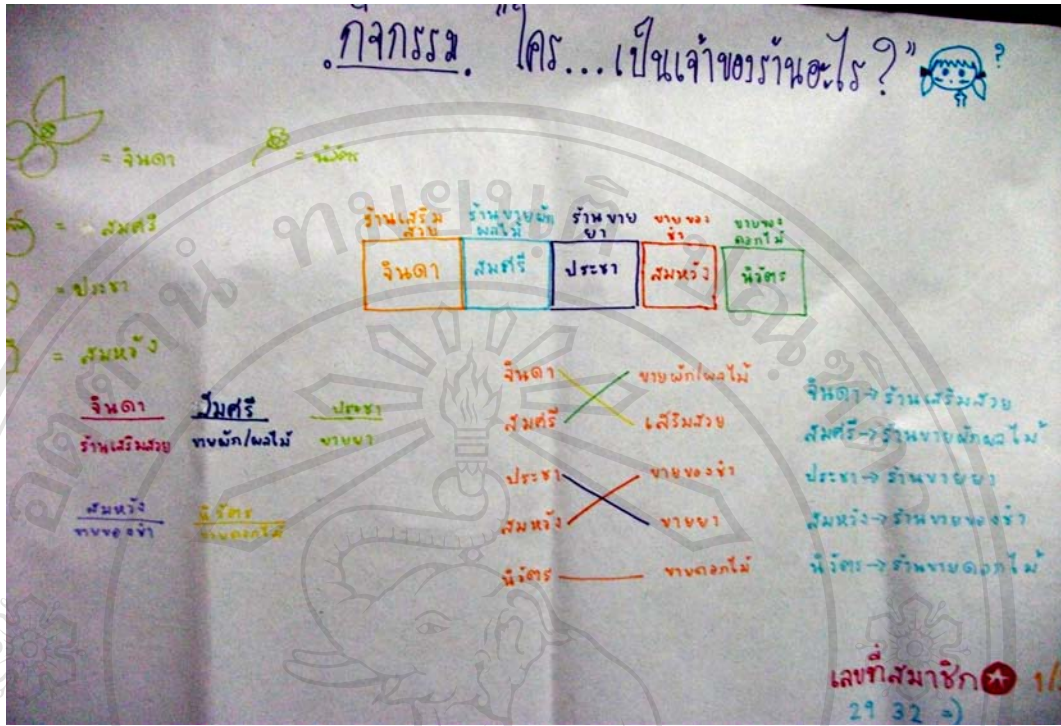 กิจกรรม "ใคร...เป็นเจ้าของร้านอะไร?"
?
= จินดา
= นิวัตร
= สมศรี
= ประชา
= สมหวัง
ร้านเสริมสวย
ร้านขายผักผลไม้
ร้านขายยา
ขายของชำ
ขายของดอกไม้
จินดา สมศรี ประชา สมหวัง นิวัตร
จินดา สมศรี ประชา
ร้านเสริมสวย ขายผัก/ผลไม้ ขายยา
สมหวัง นิวัตร
ขายของชำ ขายดอกไม้
จินดา ขายผัก/ผลไม้
สมศรี เสริมสวย
ประชา ขายของชำ
สมหวัง ขายยา
นิวัตร ขายดอกไม้
จินดา → ร้านเสริมสวย
สมศรี → ร้านขายผักผลไม้
ประชา → ร้านขายยา
สมหวัง → ร้านขายของชำ
นิวัตร → ร้านขายดอกไม้
เลขที่สมาชิก
29 32 =)